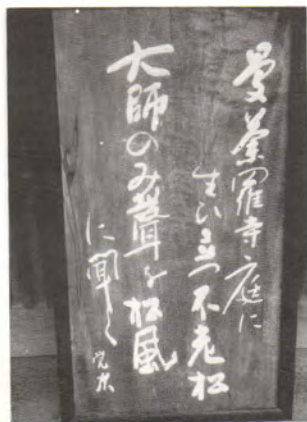 曼荼羅寺庭に
生ひ立つ不老松
大師のみ聲を松風
に聞く